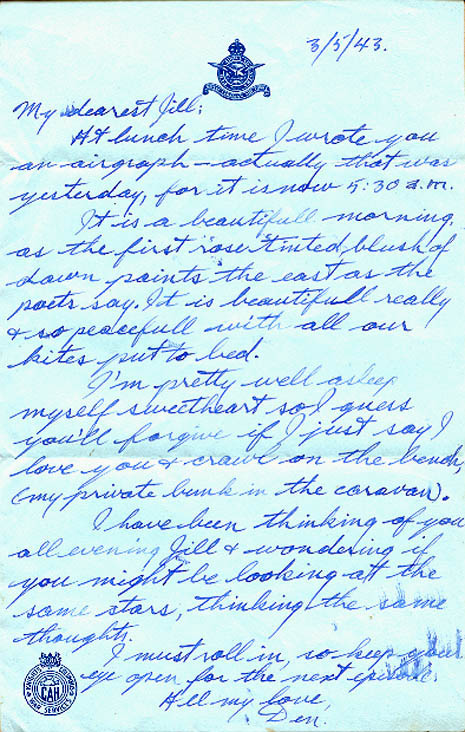 3/5/43.
My dearest Jill;
At lunch time I wrote you
an airgraph – actually that was
yesterday, for it is now 5:30 a.m.
It is a beautifull morning,
as the first rose tinted blush of
dawn paints the east as the
poets say. It is beautifull really
& so peacefull with all our
kites put to bed.
I'm pretty well asleep
myself sweetheart so I guess
you'll forgive if I just say I
love you & crawl on the bench,
(my private bunk in the caravan).
I have been thinking of you
all evening Jill & wondering if
you might be looking at the
same stars, thinking the same
thoughts.
I must roll in, so keep your
eye open for the next episode.
All my love,
Den.
KNIGHTS OF COLUMBUS
CAH
WAR SERVICES